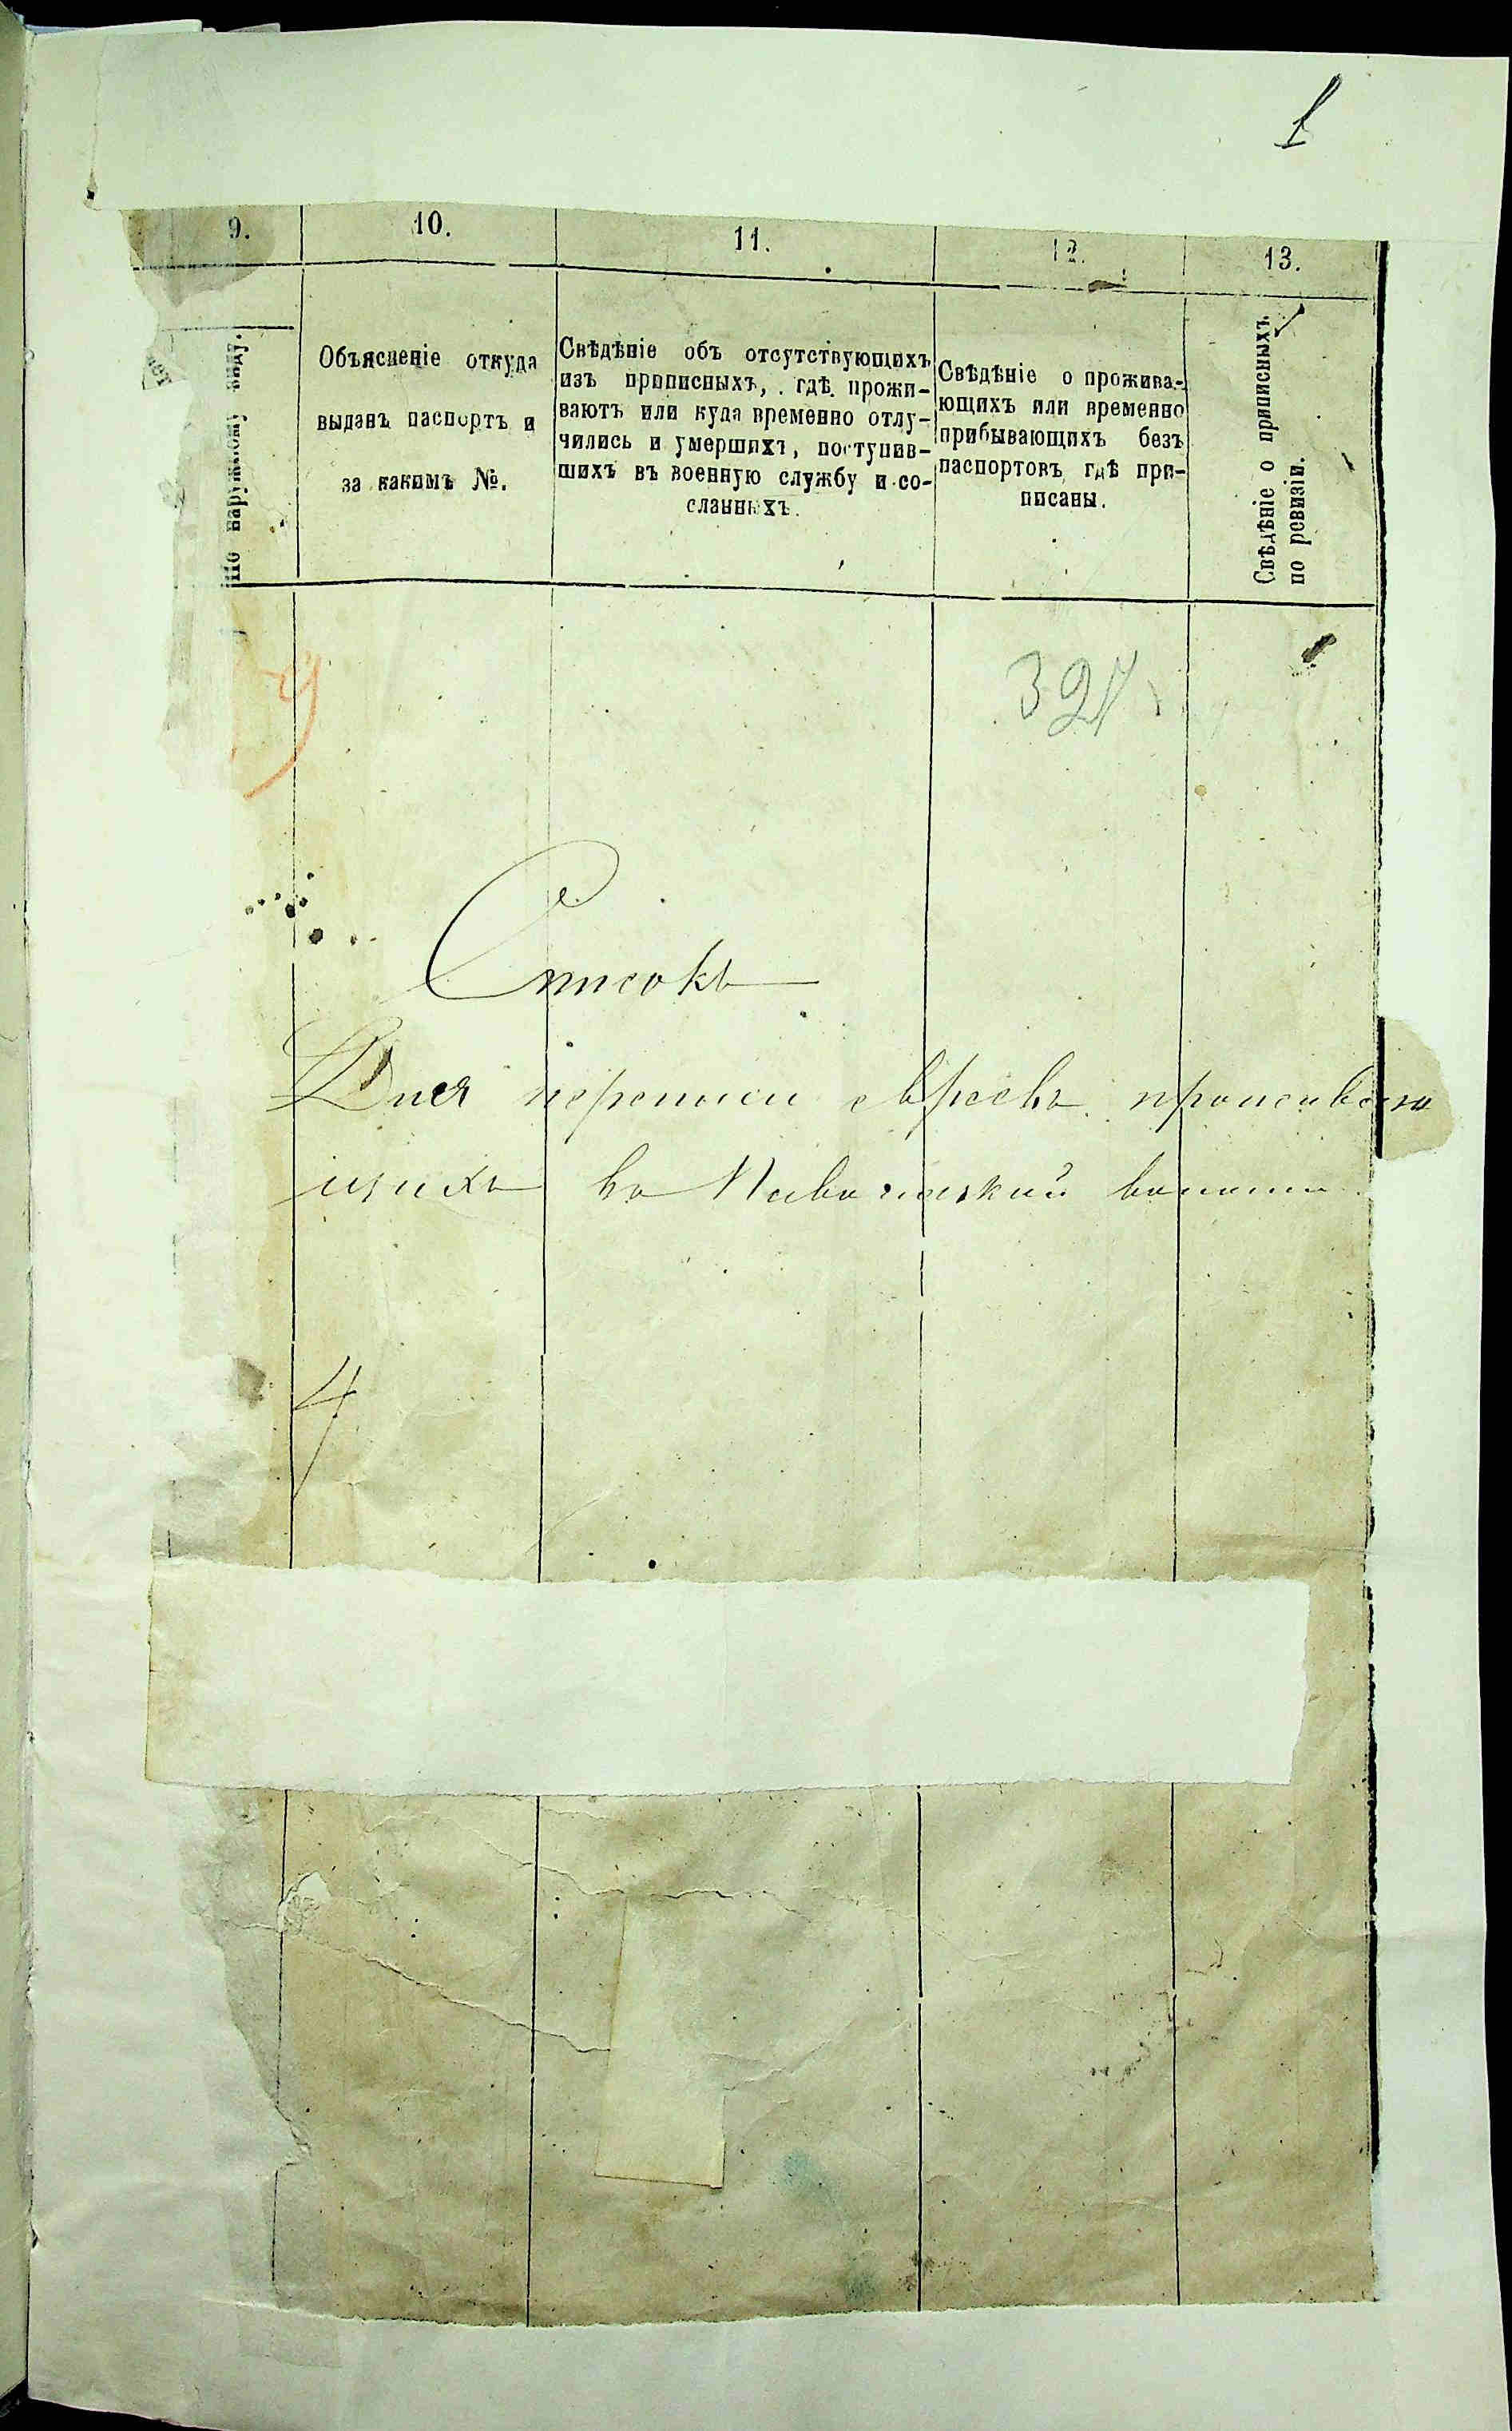 1
9.
10.
11.
12.
13.
По наружному виду.
Объясненіе откуда
выданъ паспортъ и
за какимъ №.
Свѣдѣніе объ отсутствующихъ
изъ приписныхъ, гдѣ прожи-
ваютъ или куда временно отлу-
чились и умершихъ, поступив-
шихъ въ военную службу и со-
сланныхъ.
Свѣдѣніе о прожива-
ющихъ или временно
прибывающихъ безъ
паспортовъ, гдѣ при-
писаны.
Свѣдѣніе о приписныхъ
по ревизіи.
9
Списокъ
Для переписи евреевъ проживаю
щихъ въ волости
4